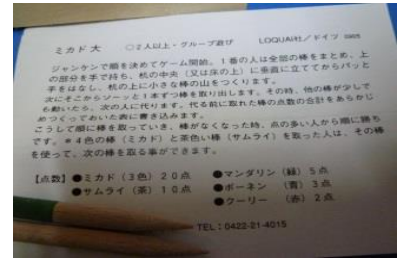 ミカド 大 ○2人以上・グループ遊び LOQUAI社／ドイツ
ジャンケンで順を決めてゲーム開始。1番の人は全部の棒をまとめ、上
の部分を手で持ち、机の中央（又は床の上）に垂直に立ててからパッと
手をはなし、机の上に小さな棒の山をつくります。
次にそこからソーッと1本ずつ棒を取り出します。その時、他の棒が少しで
も動いたら、次の人に代ります。代る前に取れた棒の点数の合計をあらかじ
めつくっておいた表に書き込みます。
こうして順に棒を取っていき、棒がなくなった時、点の多い人から順に勝ち
です。＊4色の棒（ミカド）と茶色い棒（サムライ）を取った人は、その棒
を使って、次の棒を取る事ができます。
【点数】 ●ミカド（3色）20点 ●マンダリン（緑）5点
●サムライ（茶）10点 ●ボーネン （青）3点
●クーリー （赤）2点
TEL：0422-21-4015